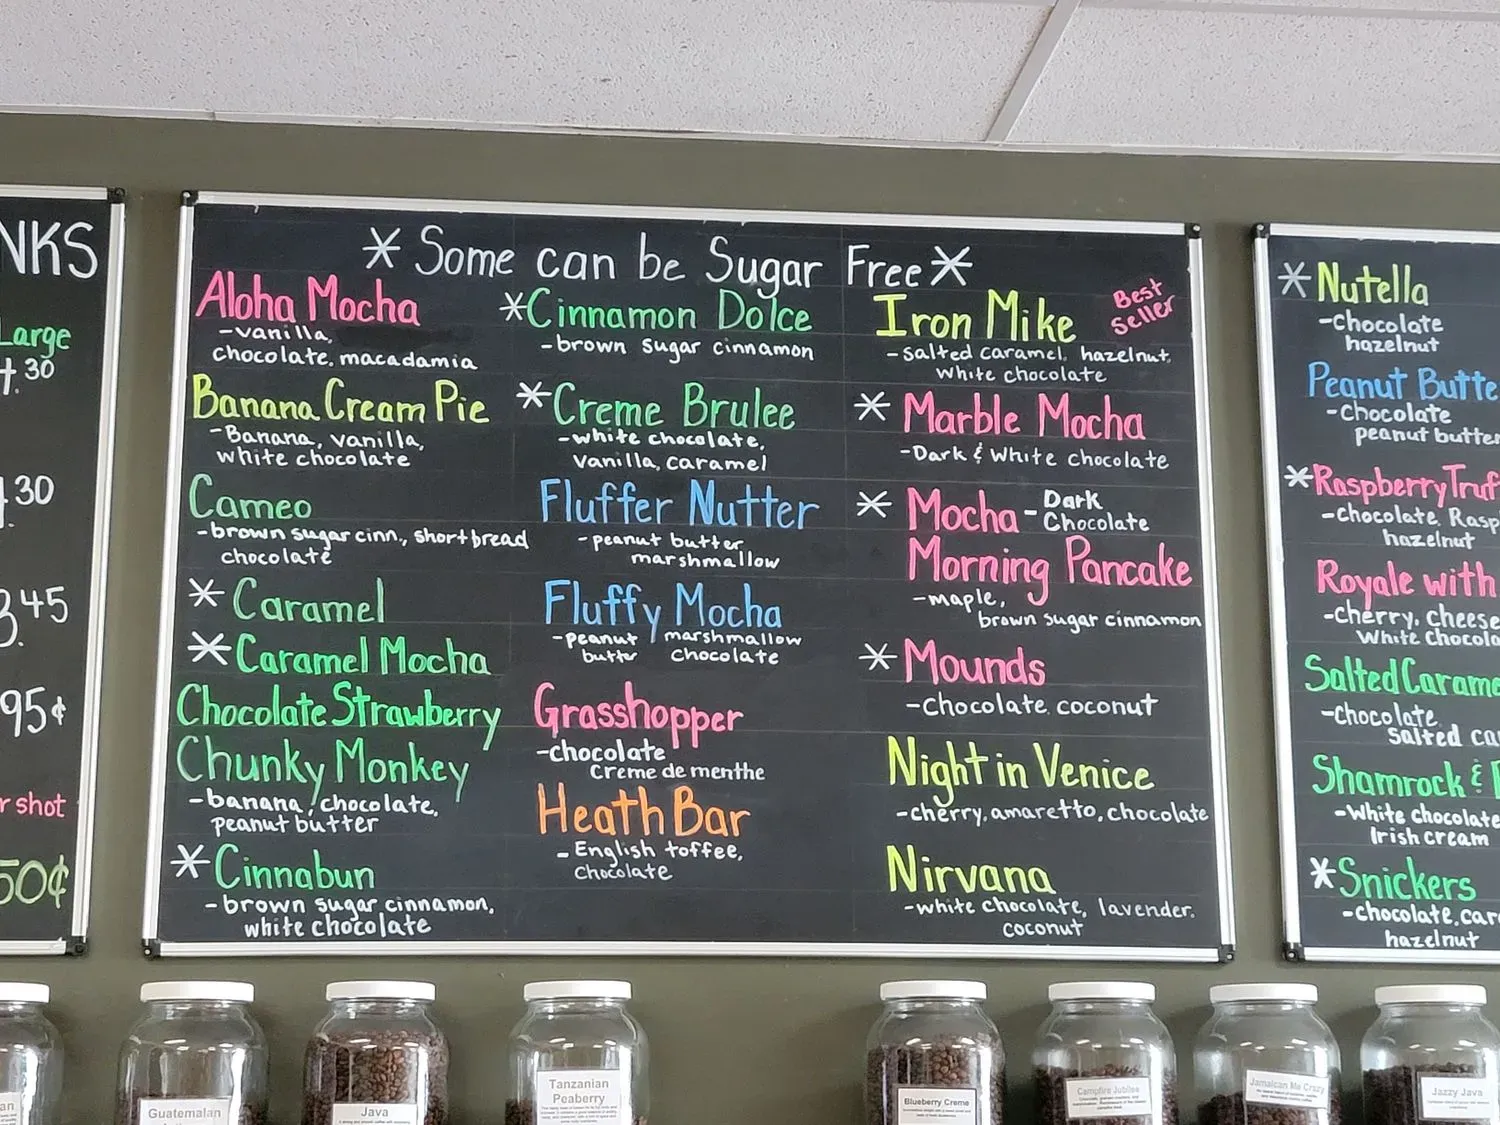 NKS
Large
.30
.30
.45
95¢
shot
50¢
* Some can be Sugar Free *
Aloha Mocha
-vanilla,
chocolate, macadamia
Banana Cream Pie
-Banana, vanilla,
white chocolate
Cameo
-brown sugar cinn., shortbread
chocolate
* Caramel
* Caramel Mocha
Chocolate Strawberry
Chunky Monkey
-banana, chocolate,
peanut butter
* Cinnabun
-brown sugar cinnamon,
white chocolate
* Cinnamon Dolce
-brown sugar cinnamon
* Creme Brulee
-white chocolate,
vanilla, caramel
Fluffer Nutter
-peanut butter
marshmallow
Fluffy Mocha
-peanut marshmallow
butter chocolate
Grasshopper
-chocolate
Creme de menthe
Heath Bar
- English toffee,
chocolate
Iron Mike
Best
Seller
-salted caramel, hazelnut,
white chocolate
* Marble Mocha
-Dark & white chocolate
* Mocha - Dark
Chocolate
Morning Pancake
-maple,
brown sugar cinnamon
* Mounds
-chocolate, coconut
Night in Venice
-cherry, amaretto, chocolate
Nirvana
-white chocolate, lavender,
coconut
* Nutella
-chocolate
hazelnut
Peanut Butte
-chocolate
peanut butter
* Raspberry Truf
-chocolate, Rasp
hazelnut
Royale with
-cherry, cheese
White chocola
Salted Carame
-chocolate,
salted ca
Shamrock &
-White chocolate
Irish cream
* Snickers
-chocolate, car
hazelnut
Guatemalan
Java
Tanzanian
Peaberry
Blueberry Creme
Campfire Jubilee
Jamaican Me Crazy
Jazzy Java